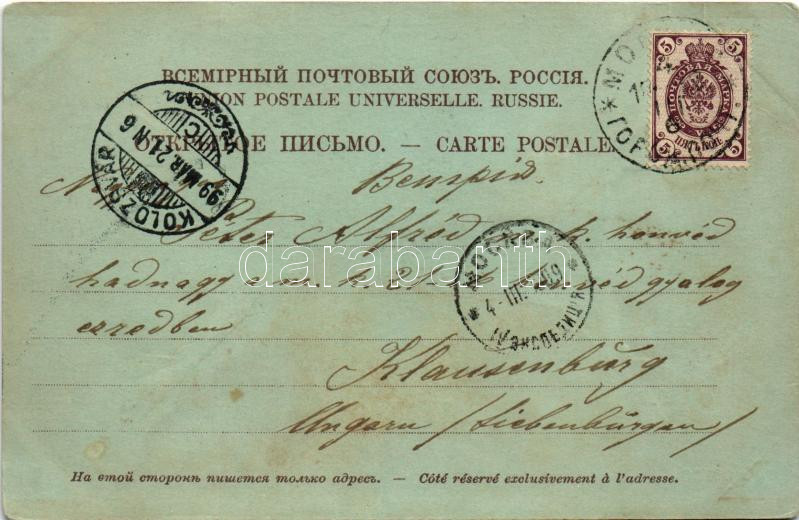 ВСЕМІРНЫЙ ПОЧТОВЫЙ СОЮЗЪ. РОССІЯ.
UNION POSTALE UNIVERSELLE. RUSSIE.
ОТКРЫТОЕ ПИСЬМО. — CARTE POSTALE.
5 5
ПОЧТОВАЯ МАРКА
ПЯТЬ КОП.
5 5
KOLOZSVÁR
99 MAR. 21 N 6
Венгрія.
Péter Alfréd k. honvéd
hadnagy
ezredben
МОСКВА
4-III
Klausenburg
Ungarn (Siebenbürgen)
darabanth
На этой сторонѣ пишется только адресъ. — Côté réservé exclusivement à l'adresse.